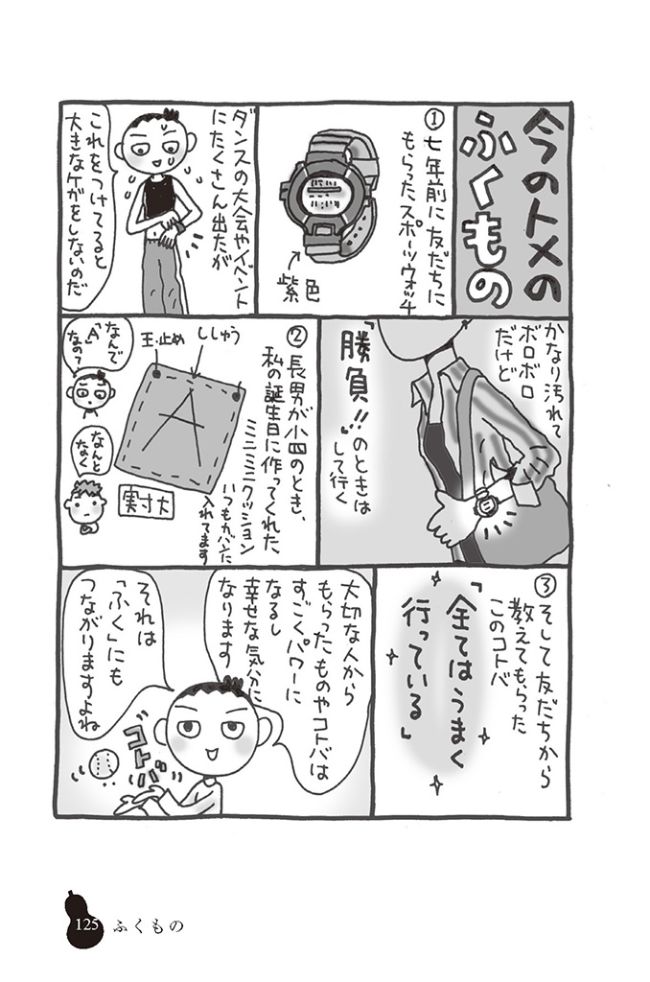 今のトメの
ふくもの
①七年前に友だちに
もらったスポーツウォッチ
紫色
ダンスの大会やイベント
にたくさん出たが
これをつけてると
大きなケガをしないのだ
かなり汚れて
ボロボロ
だけど
「勝負!!」のときは
して行く
②長男が小四のとき、
私の誕生日に作ってくれた
ミニミニクッション
いつもカバンに
入れてます
ししゅう
玉止め
A
実寸大
なんで
「A」
なの?
なんと
なく
③そして友だちから
教えてもらった
このコトバ
「全てはうまく
行っている」
大切な人から
もらったものやコトバは
すごくパワーに
なるし
幸せな気分に
なります
それは
「ふく」にも
つながりますよね
コトバ
125 ふくもの